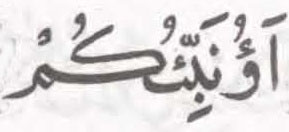 اَؤُنَبِّئُكُمْ